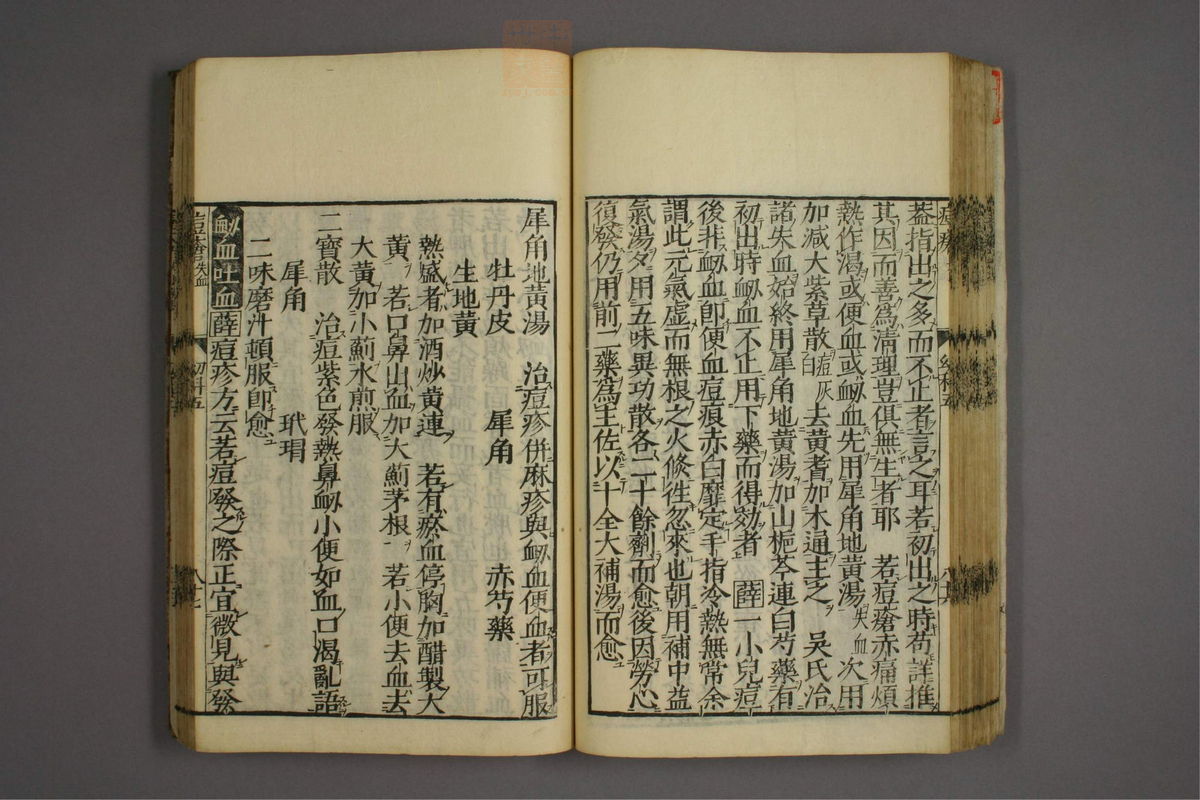 葢指出之多而不止者言之耳若初出之時苟詳推
其因而善爲清理豈俱無生者耶 若痘瘡赤痛煩
熱作渴或便血或衂血先用犀角地黄湯失血次用
加减大紫草散痘灰白去黄耆加木通主之 吳氏治
諸失血始終用犀角地黄湯加山梔芩連白芍藥有
初出時衂血不止用下藥而得効者 薛一小兒痘
後非衂血卽便血痘痕赤白靡定手指冷熱無常余
謂此元氣虛而無根之火倐徃忽來也朝用補中益
氣湯夕用五味異功散各二十餘劑而愈後因勞心
復發仍用前二藥爲主佐以十全大補湯而愈
犀角地黄湯 治痘疹併麻疹與衂血便血者可服
牡丹皮 犀角 赤芍藥
生地黄
熱盛者加酒炒黄連 若有瘀血停胸加醋製大
黄 若口鼻出血加大薊茅根 若小便去血去
大黄加小薊水煎服
二寳散 治痘紫色發熱鼻衂小便如血口渴亂語
犀角 玳瑁
二味磨汁頓服卽愈
衂血吐血 薛痘疹方云若痘發之際正宜微見與發
幼科五
八十七